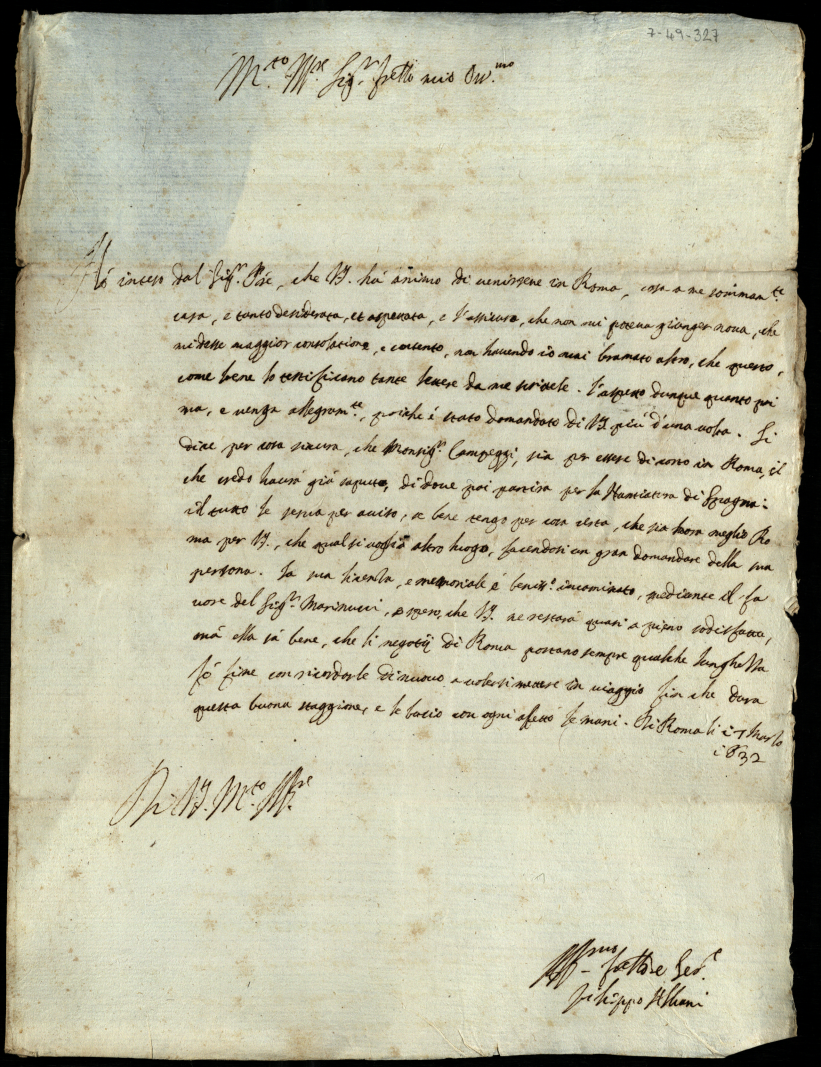 7-49-327
M.to Ill.re Sig.r fratello mio Oss.mo
Hò inteso dal Sig.r P're, che V.S. hà animo di venirsene in Roma, cosa a me sommam.te
cara, e tanto desiderata, et aspettata, e l'assicuro, che non mi poteva giunger nova, che
mi desse maggior consolatione, e contento, non havendo io mai bramato altro, che questo,
come bene lo testificano tante lettere da me scrittele. l'aspetto dunque quanto pri
ma, e venga allegram.te, poiche è stato domandato di V.S. più d'una volta. Si
dice per cosa sicura, che Monsig.r Campeggi, sia per essere di corto in Roma, il
che credo haurà già saputo, di dove poi partirà per la Nuntiatura di Spagna.
il tutto le serva per aviso, se bene tengo per cosa certa, che sia hora meglio Ro
ma per V.S., che qual si voglia altro luogo, facendosi un gran domandare della sua
persona. La sua licenza, e memoriale è beniss.o incaminato, mediante il fa
vore del Sig.r Marinucci, e spero, che V.S. ne restarà quasi a pieno sodisfatta,
mà ella sà bene, che li negotij di Roma portano sempre qualche lunghezza
fò fine con ricordarle di nuovo a volersi mettere in viaggio fin che dura
questa buona staggione, e le bacio con ogni affetto le mani. Di Roma li 17 Marzo
1632
Di V.S. M.to Ill.re
fratello e Ser.e
Filippo Albani